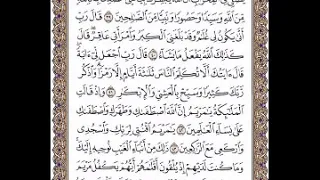 مِّنَ ٱللَّهِ وَسَيِّدًا وَحَصُورًا وَنَبِيًّا مِّنَ ٱلصَّٰلِحِينَ ٣٩ قَالَ رَبِّ
أَنَّىٰ يَكُونُ لِى غُلَٰمٌ وَقَدْ بَلَغَنِىَ ٱلْكِبَرُ وَٱمْرَأَتِى عَاقِرٌ قَالَ
كَذَٰلِكَ ٱللَّهُ يَفْعَلُ مَا يَشَآءُ ٤٠ قَالَ رَبِّ ٱجْعَل لِّىٓ ءَايَةً
قَالَ ءَايَتُكَ أَلَّا تُكَلِّمَ ٱلنَّاسَ ثَلَٰثَةَ أَيَّامٍ إِلَّا رَمْزًا وَٱذْكُر
رَّبَّكَ كَثِيرًا وَسَبِّحْ بِٱلْعَشِىِّ وَٱلْإِبْكَٰرِ ٤١ وَإِذْ قَالَتِ
ٱلْمَلَٰٓئِكَةُ يَٰمَرْيَمُ إِنَّ ٱللَّهَ ٱصْطَفَىٰكِ وَطَهَّرَكِ وَٱصْطَفَىٰكِ
عَلَىٰ نِسَآءِ ٱلْعَٰلَمِينَ ٤٢ يَٰمَرْيَمُ ٱقْنُتِى لِرَبِّكِ وَٱسْجُدِى
وَٱرْكَعِى مَعَ ٱلرَّٰكِعِينَ ٤٣ ذَٰلِكَ مِنْ أَنۢبَآءِ ٱلْغَيْبِ نُوحِيهِ إِلَيْكَ
وَمَا كُنتَ لَدَيْهِمْ إِذْ يُلْقُونَ أَقْلَٰمَهُمْ أَيُّهُمْ يَكْفُلُ مَرْيَمَ